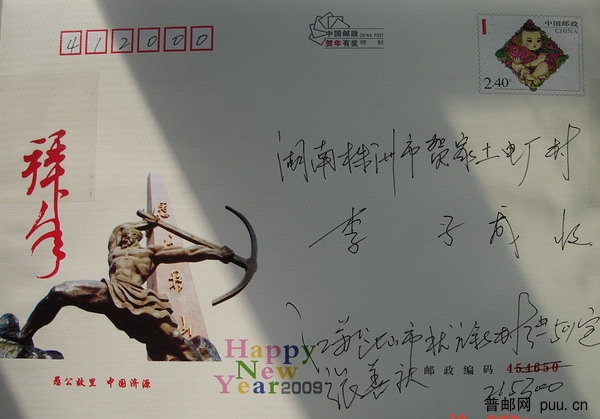 412000
中国邮政 CHINA POST
贺年有奖
中国邮政
CHINA
2.40元
拜年
湖南株洲市贺家土电厂村
李子成 收
愚公移山
江苏昆山市
Happy
New
Year 2009
张善秋
邮政编码 454650
215300
愚公故里 中国济源
普邮网 puu.cn